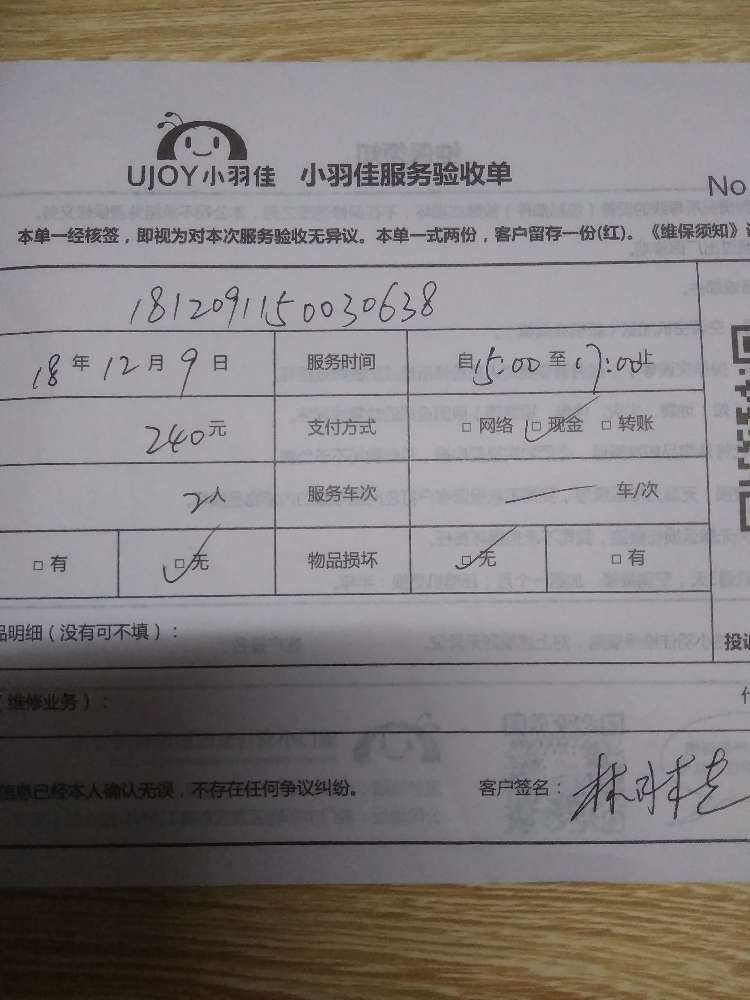 UJOY小羽佳 小羽佳服务验收单
No
本单一经核签，即视为对本次服务验收无异议。本单一式两份，客户留存一份(红)。《维保须知》
1812091150030638
18年12月9日 服务时间 自15:00至17:00止
240元 支付方式 □网络 □现金 □转账
2人 服务车次 车/次
□有 □无 物品损坏 □无 □有
品明细（没有可不填）：
投诉
（维修业务）：
信息已经本人确认无误，不存在任何争议纠纷。 客户签名：林